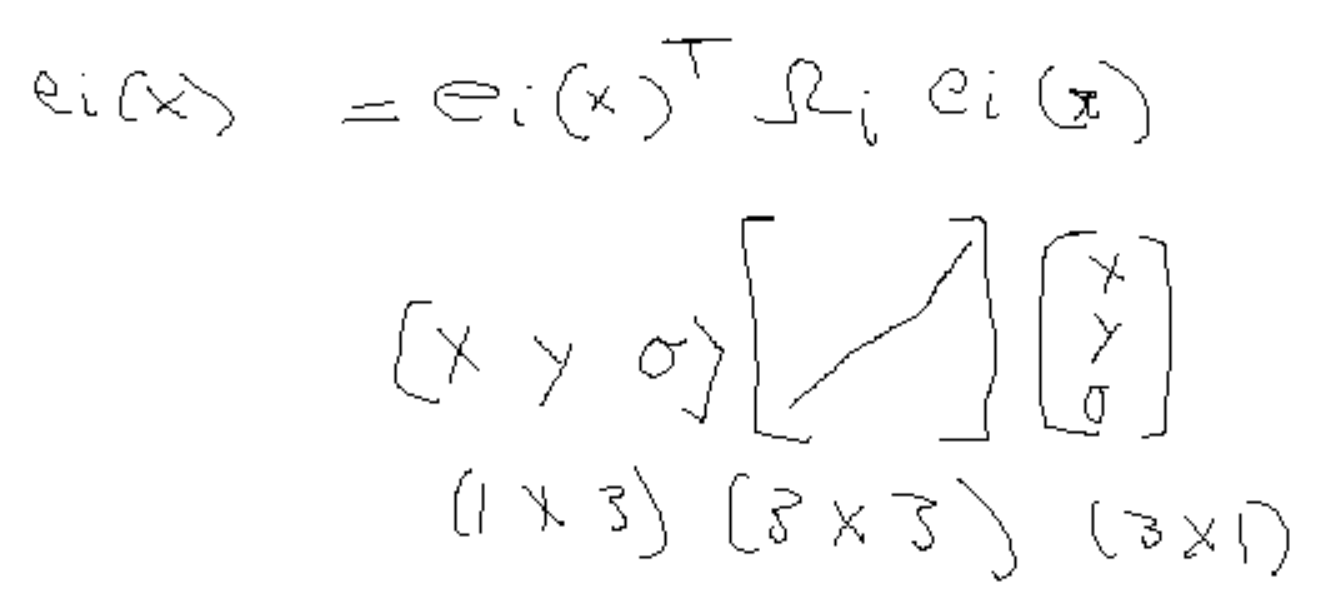 ei(x) = ei(x)^T Ωi ei(x)
[x y σ] [ ] [x y σ]
(1 x 3) (3 x 3) (3 x 1)